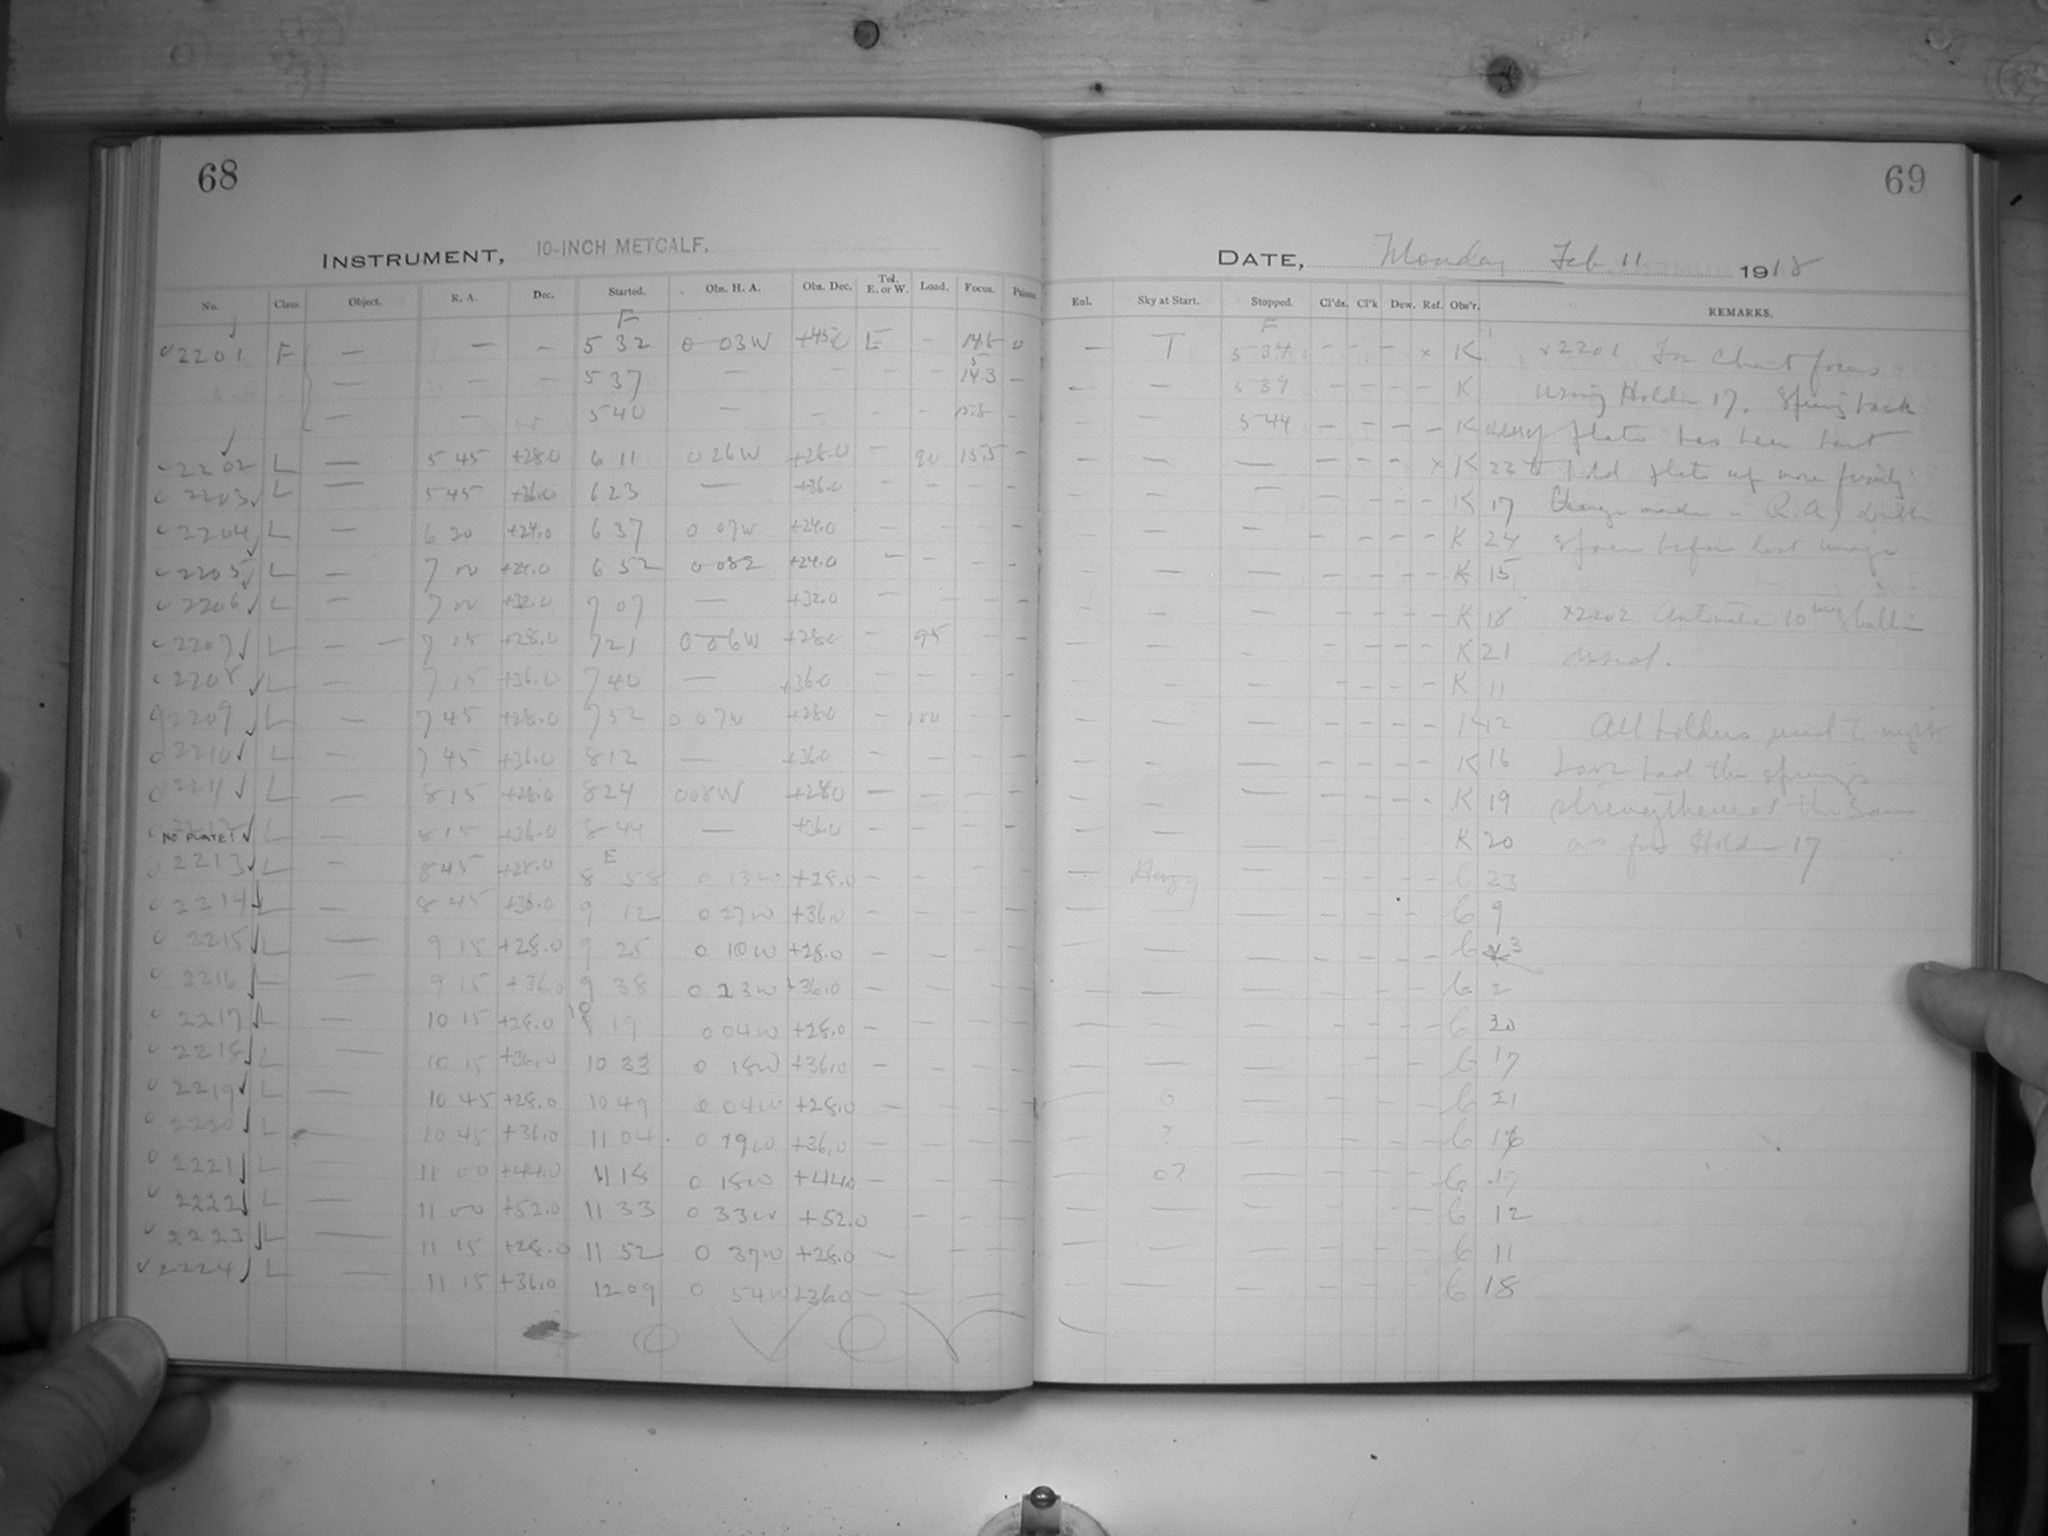 68
69
INSTRUMENT, 10-INCH METCALF.
DATE, Monday Feb 11 1918
No. Class. Object. R. A. Dec. Started. Obs. H. A. Obs. Dec. Tel. E. or W. Load. Focus. Prisms Enl. Sky at Start. Stopped. Cl'ds. Cl'k Dew. Ref. Obs'r. REMARKS.
2201 F — — — 5 32 0 03W +45 E — 14.8 0 — T 5 34 — — — x K x2201 For Chart focus
— — — 5 37 — — — — 14.3 — — — 5 39 — — — K using Holder 17. Spring back
— — 5 40 — — — — — — 5 44 — — — — K plate has been bent
2202 L — 5 45 +28.0 6 11 0 26W +28.0 — 90 15.5 — — — — — — — x K 22 to hold plate up more firmly
2203 L — 5 45 +36.0 6 23 — +36.0 — — — — — — — — — — K 17 Change made in R.A.
2204 L — 6 30 +24.0 6 37 0 07W +24.0 — — — — — — — — — — — K 24 before last image
2205 L — 7 00 +24.0 6 52 0 08E +24.0 — — — — — — — — — — — K 15
2206 L — 7 00 +32.0 7 07 — +32.0 — — — — — — — — — — — K 18 x2202 10
2207 L — 7 15 +28.0 7 21 0 06W +28.0 — 95 — — — — — — — — — K 21 used.
2208 L — 7 15 +36.0 7 40 — +36.0 — — — — — — — — — — — K 11
2209 L — 7 45 +28.0 7 52 0 07W +28.0 — 100 — — — — — — — — — K 12 All holders used to-night
2210 L — 7 45 +36.0 8 12 — +36.0 — — — — — — — — — — — K 16 have had the springs
2211 L — 8 15 +28.0 8 24 0 08W +28.0 — — — — — — — — — — — K 19 strengthened the same
NO PLATE! L — 8 15 +36.0 8 44 — +36.0 — — — — — — — — — K 20 as for Holder 17
2213 L — 8 45 +28.0 8 58 0 13W +28.0 — — — — — Hazy — — — — — C 23
2214 L — 8 45 +36.0 9 12 0 27W +36.0 — — — — — — — — — — — C 9
2215 L — 9 15 +28.0 9 25 0 10W +28.0 — — — — — — — — — — — C 3
2216 L — 9 15 +36.0 9 38 0 23W +36.0 — — — — — — — — — — — C 2
2217 L — 10 15 +28.0 10 19 0 04W +28.0 — — — — — — — — — — — C 20
2218 L — 10 15 +36.0 10 33 0 18W +36.0 — — — — — — — — — — C 17
2219 L — 10 45 +28.0 10 49 0 04W +28.0 — — — — — 0 — — — — — C 21
2220 L — 10 45 +36.0 11 04 0 19W +36.0 — — — — — ? — — — — — C 16
2221 L — 11 00 +44.0 11 18 0 18W +44.0 — — — — — 0? — — — — — C 19
2222 L — 11 00 +52.0 11 33 0 33W +52.0 — — — — — — — — — — C 12
2223 L — 11 15 +28.0 11 52 0 37W +28.0 — — — — — — — — — — — C 11
2224 L — 11 15 +36.0 12 09 0 54W +36.0 — — — — — — — — — — C 18